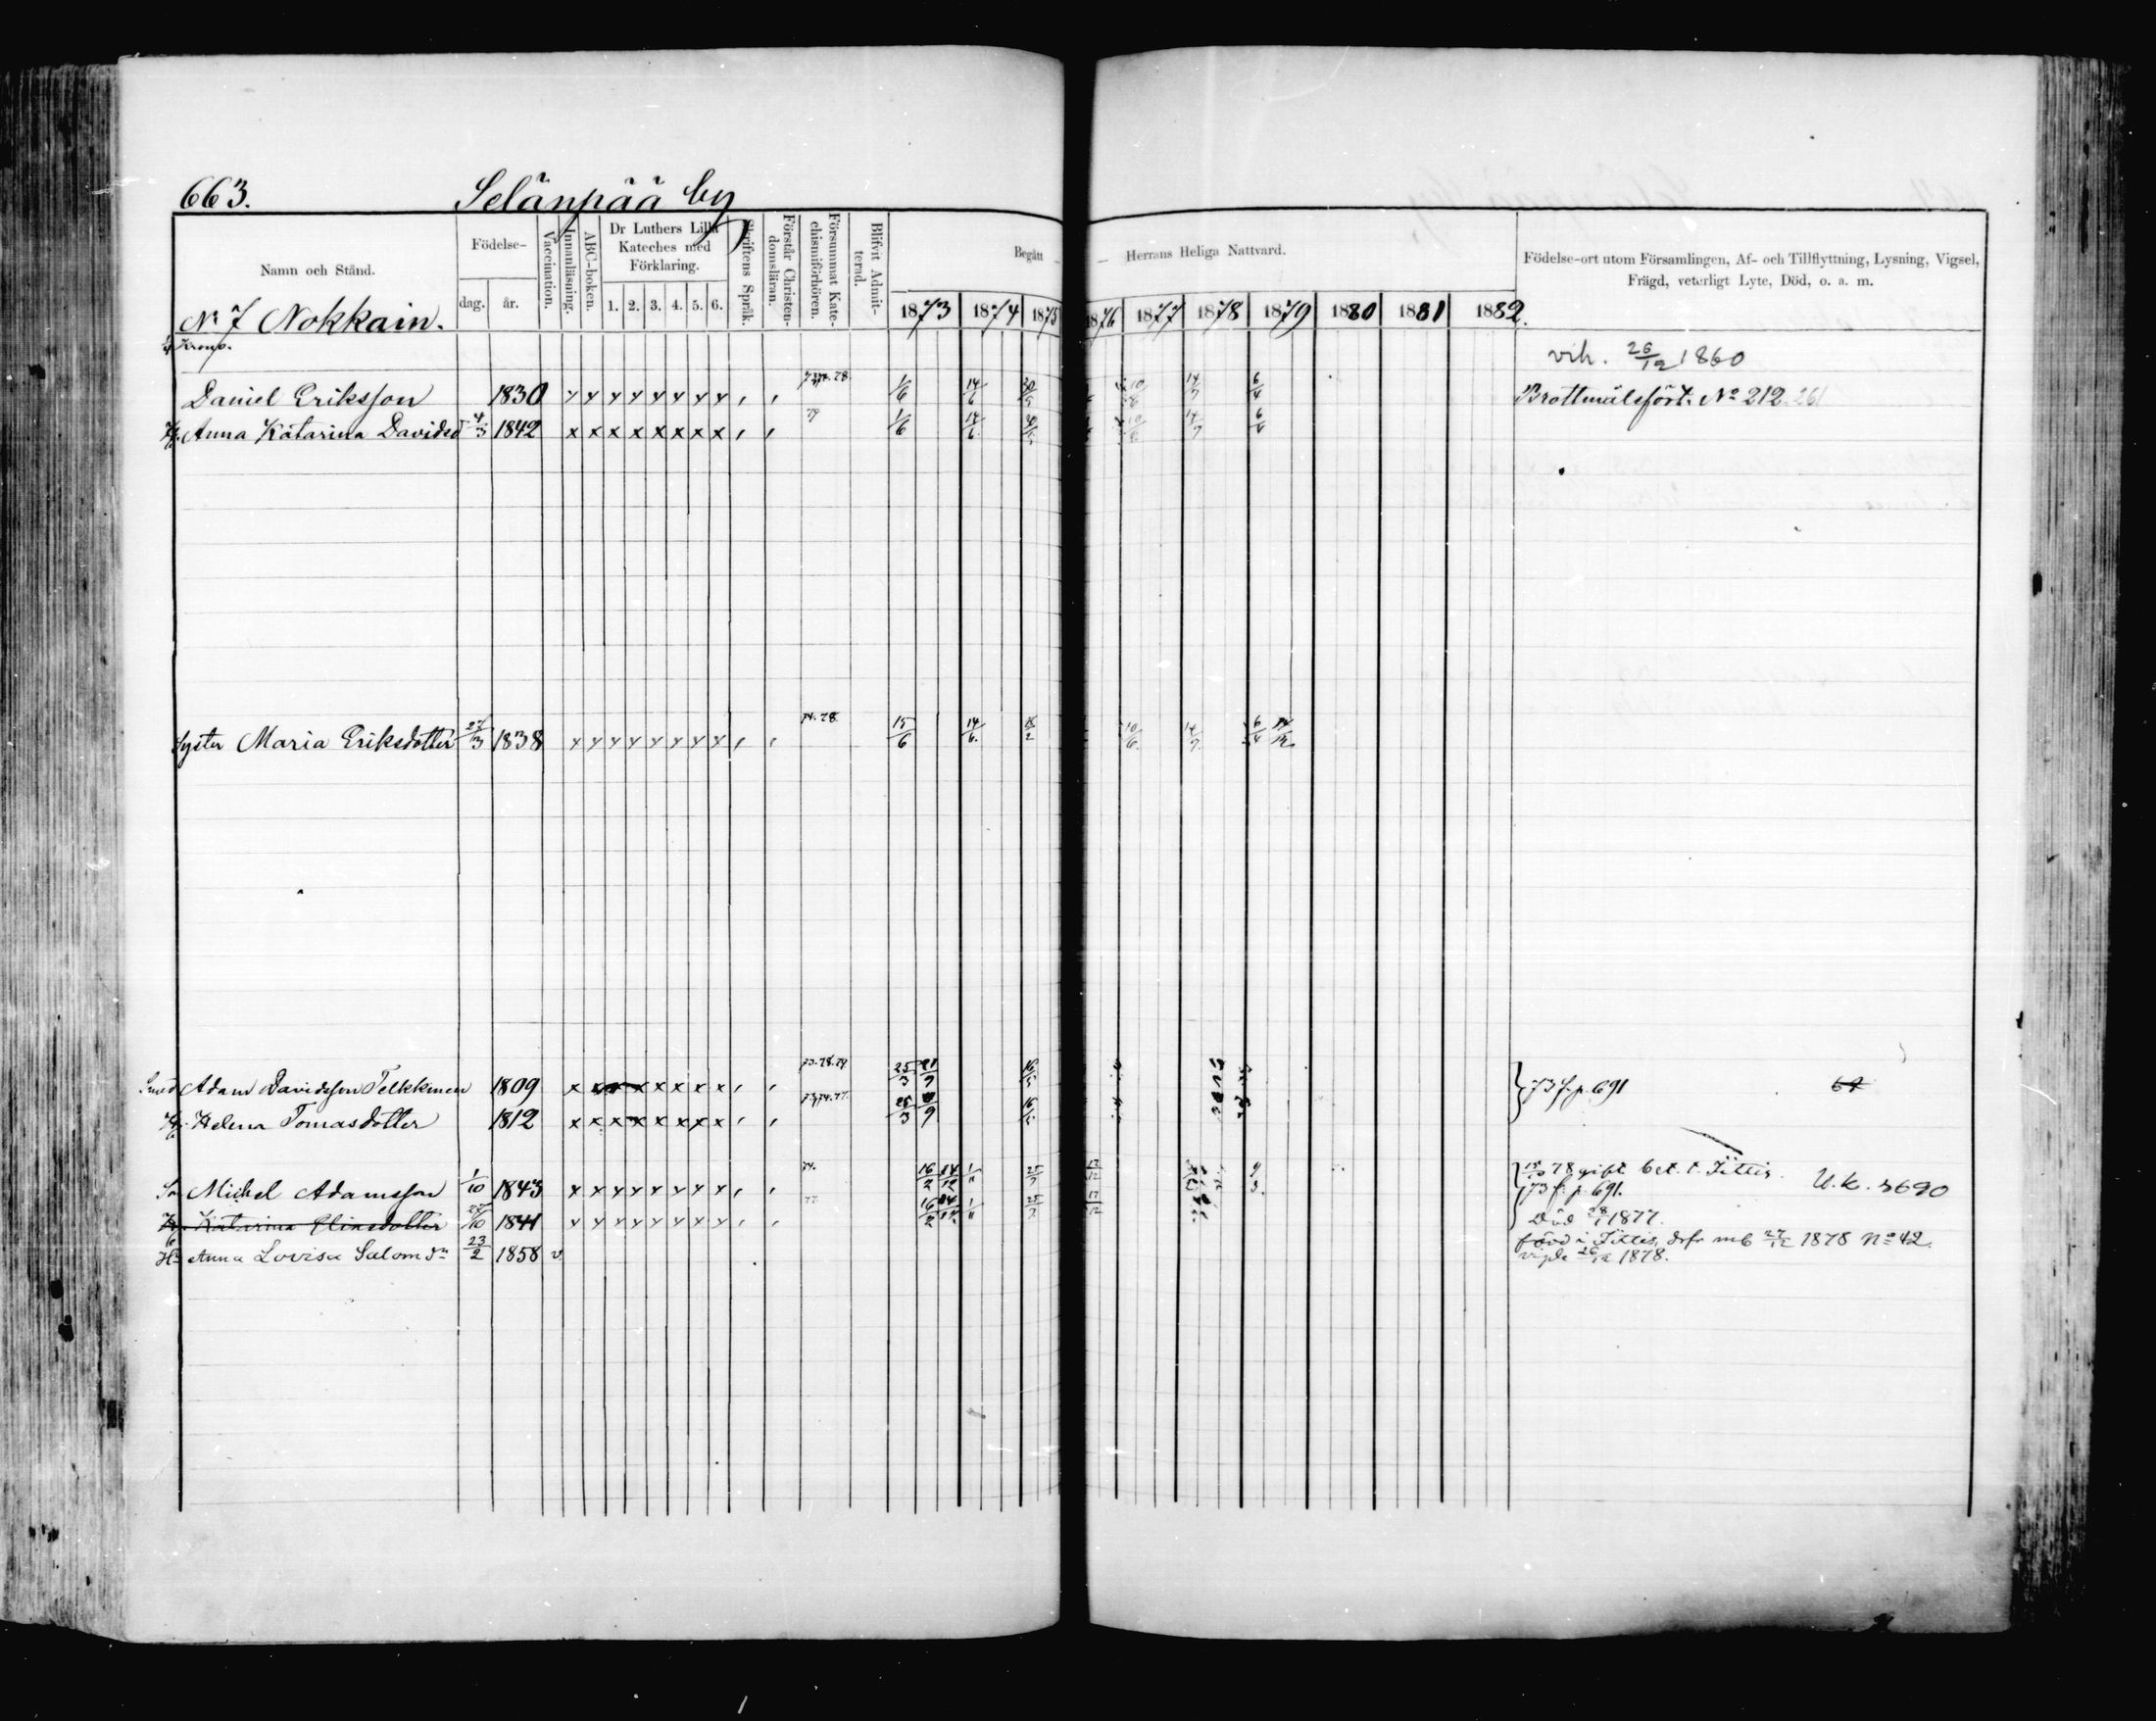 663. Selänpää by
Namn och Stånd.
Födelse-
dag. år.
Vaccination.
Innanläsning.
ABC-boken.
Dr Luthers Lilla Kateches med Förklaring.
1. 2. 3. 4. 5. 6.
Skriftens Språk.
Förstår Christendomsläran.
Försummat Katechismiförhören.
Blifvit Admitterad.
Begått — — Herrans Heliga Nattvard.
1873 1874 1875 1876 1877 1878 1879 1880 1881 1882.
Födelse-ort utom Församlingen, Af- och Tillflyttning, Lysning, Vigsel,
Frägd, veterligt Lyte, Död, o. a. m.
No 7 Nokkain.
vih. 26/12 1860
Daniel Eriksson 1830 x x x x x x x x 1/6 14/6 10/6 14/7 6/4 Brottmålsfört. No 212. 261
Hu. Anna Katarina Davidsd 4/3 1842 x x x x x x x x 79 1/6 14/6 10/6 14/7 6/4
Syster Maria Eriksdotter 27/3 1838 x x x x x x x x 74. 78. 15/6 14/6 10/6 14/7 6/4
Smed Adam Davidsson Telkkinen 1809 x x x x x x x x 73. 78. 79 25/3 21/9 73 f. p. 691
Hu Helena Tomasdotter 1812 x x x x x x x x 73. 74. 77. 25/3
So Michel Adamsson 1/10 1843 x x x x x x x x 74. 16/2 14/12 1/11 25/7 78 gift bet. t. Jittis. U.k. 3690
73 f. p. 691.
Hu Katarina Eliasdotter 1841 x x x x x x x x 77. 16/2 1/11 25/7 Död 1877.
Hu Anna Lovisa Salomdr 23/2 1858 v. född i Jittis, mb 27/12 1878 No 42.
vigde 26/12 1878.